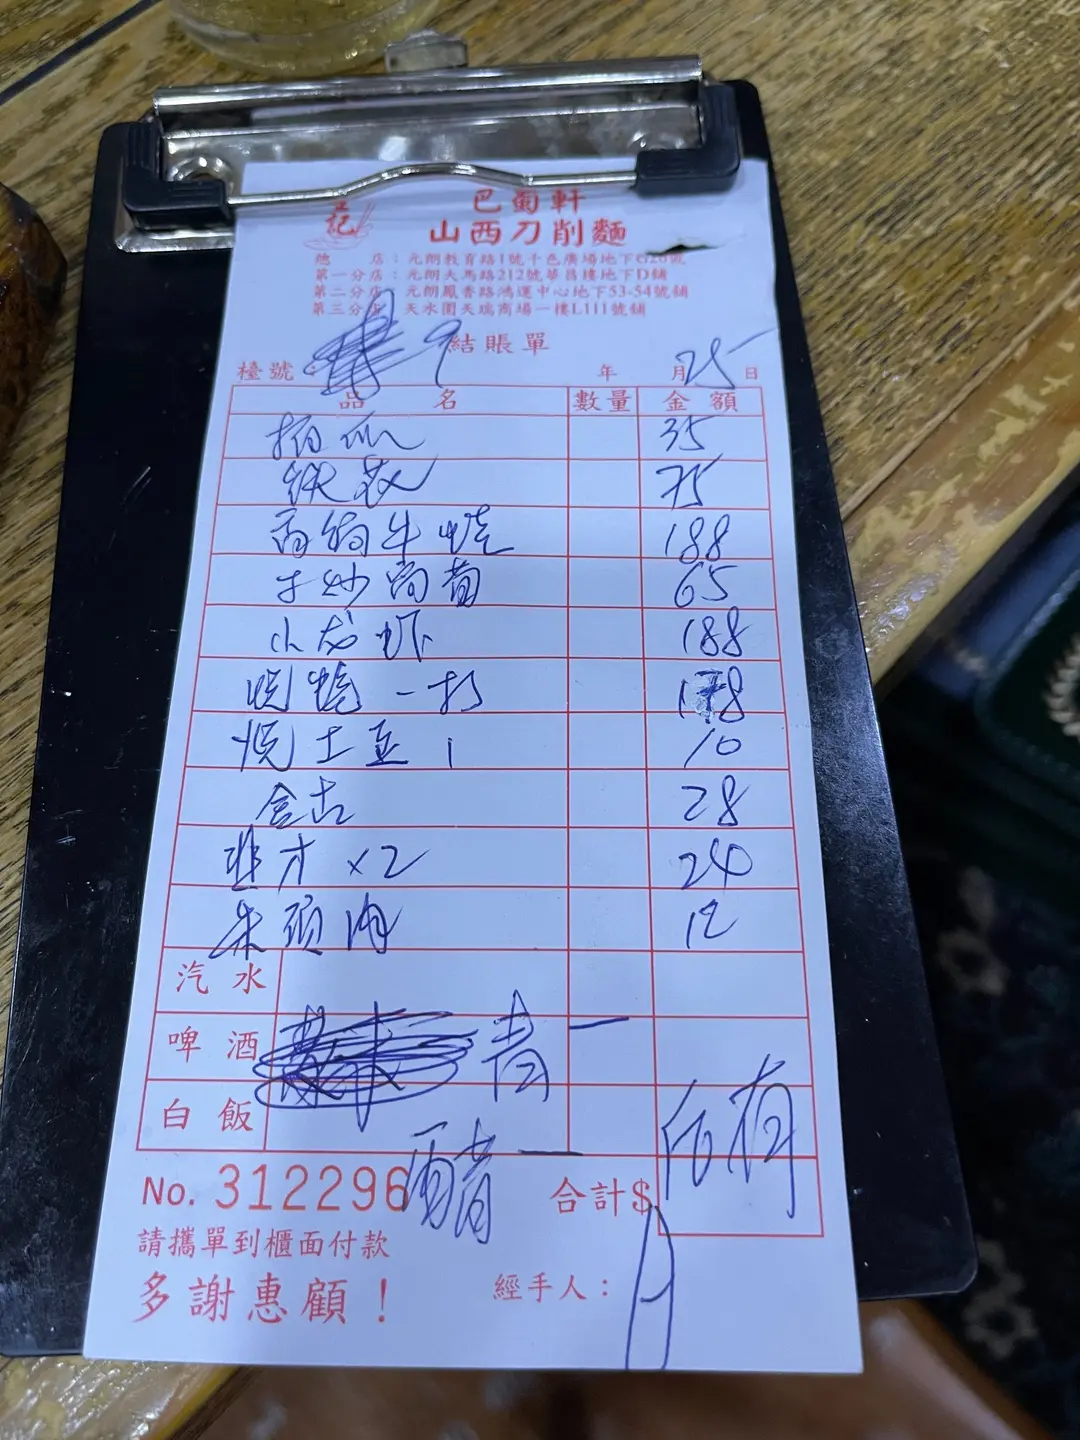 記
巴蜀軒
山西刀削麵
總 店：元朗教育路1號千色廣場地下G26號
第一分店：元朗大馬路212號華昌樓地下D舖
第二分店：元朗鳳香路鴻運中心地下53-54號舖
第三分店：天水圍天瑞商場一樓L111號舖
9 結賬單
檯號 年 月 25 日
品 名 數量 金額
拍瓜 35
75
牛 188
65
小龙虾 188
一打 1 8
土豆 1 10
28
韭才 x2 24
朱頭肉 12
汽水
啤酒 青 一
白飯
No. 312296 醋 一 合計$
請攜單到櫃面付款
多謝惠顧！ 經手人：